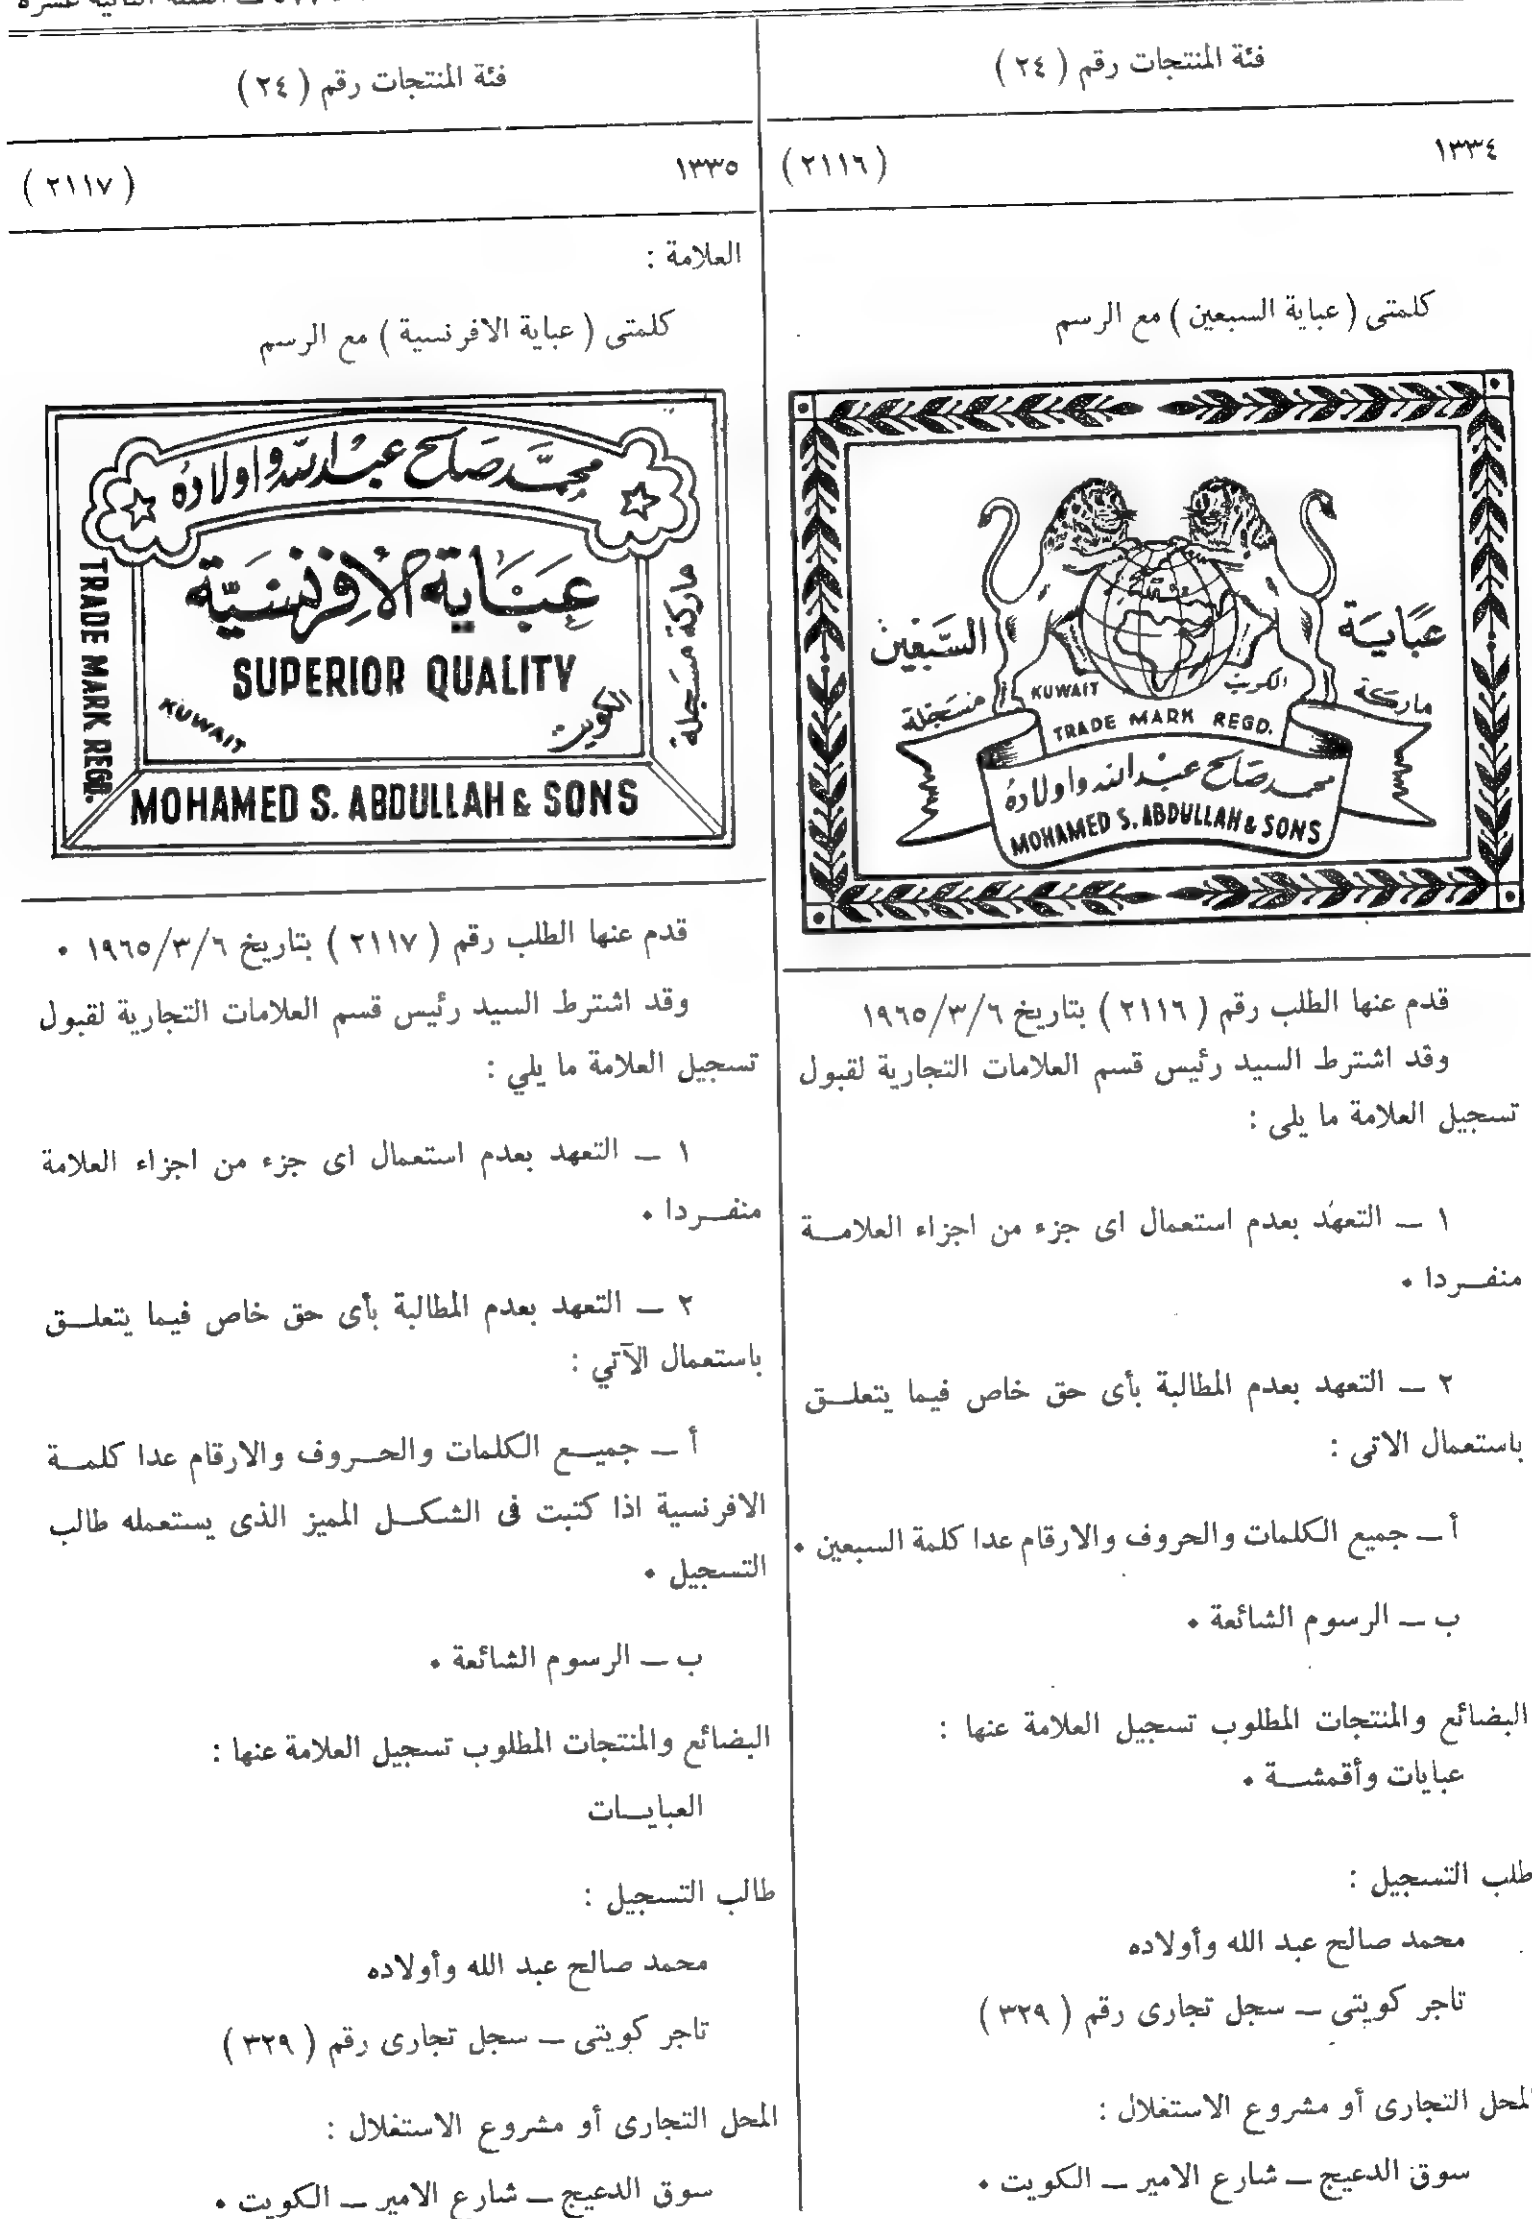 فئة المنتجات رقم ( ٢٤ )
١٣٣٤ ( ٢١١٦ )
كلمتى ( عباية السبعين ) مع الرسم
عباية
السبعين
ماركة
مسجلة
KUWAIT
الكويت
TRADE MARK REGD.
محمد صالح عبد الله واولاده
MOHAMED S. ABDULLAH & SONS
قدم عنها الطلب رقم ( ٢١١٦ ) بتاريخ ١٩٦٥/٣/٦
وقد اشترط السيد رئيس قسم العلامات التجارية لقبول
تسجيل العلامة ما يلى :
١ ــ التعهد بعدم استعمال اى جزء من اجزاء العلامــة
منفــردا ٠
٢ ــ التعهد بعدم المطالبة بأى حق خاص فيما يتعلــق
باستعمال الاتى :
أ ــ جميع الكلمات والحروف والارقام عدا كلمة السبعين ٠
ب ــ الرسوم الشائعة ٠
البضائع والمنتجات المطلوب تسجيل العلامة عنها :
عبايات وأقمشــة ٠
طلب التسجيل :
محمد صالح عبد الله وأولاده
تاجر كويتى ــ سجل تجارى رقم ( ٣٢٩ )
المحل التجارى أو مشروع الاستغلال :
سوق الدعيج ــ شارع الامير ــ الكويت ٠
فئة المنتجات رقم ( ٢٤ )
١٣٣٥ ( ٢١١٧ )
العلامة :
كلمتى ( عباية الافرنسية ) مع الرسم
محمد صالح عبد الله واولاده
عباية الافرنسية
SUPERIOR QUALITY
KUWAIT
الكويت
TRADE MARK REGD.
ماركة مسجلة
MOHAMED S. ABDULLAH & SONS
قدم عنها الطلب رقم ( ٢١١٧ ) بتاريخ ١٩٦٥/٣/٦ ٠
وقد اشترط السيد رئيس قسم العلامات التجارية لقبول
تسجيل العلامة ما يلي :
١ ــ التعهد بعدم استعمال اى جزء من اجزاء العلامة
منفــردا ٠
٢ ــ التعهد بعدم المطالبة بأى حق خاص فيما يتعلــق
باستعمال الآتي :
أ ــ جميــع الكلمات والحــروف والارقام عدا كلمــة
الافرنسية اذا كتبت فى الشكــل المميز الذى يستعمله طالب
التسجيل ٠
ب ــ الرسوم الشائعة ٠
البضائع والمنتجات المطلوب تسجيل العلامة عنها :
العبايــات
طالب التسجيل :
محمد صالح عبد الله وأولاده
تاجر كويتى ــ سجل تجارى رقم ( ٣٢٩ )
المحل التجارى أو مشروع الاستغلال :
سوق الدعيج ــ شارع الامير ــ الكويت ٠